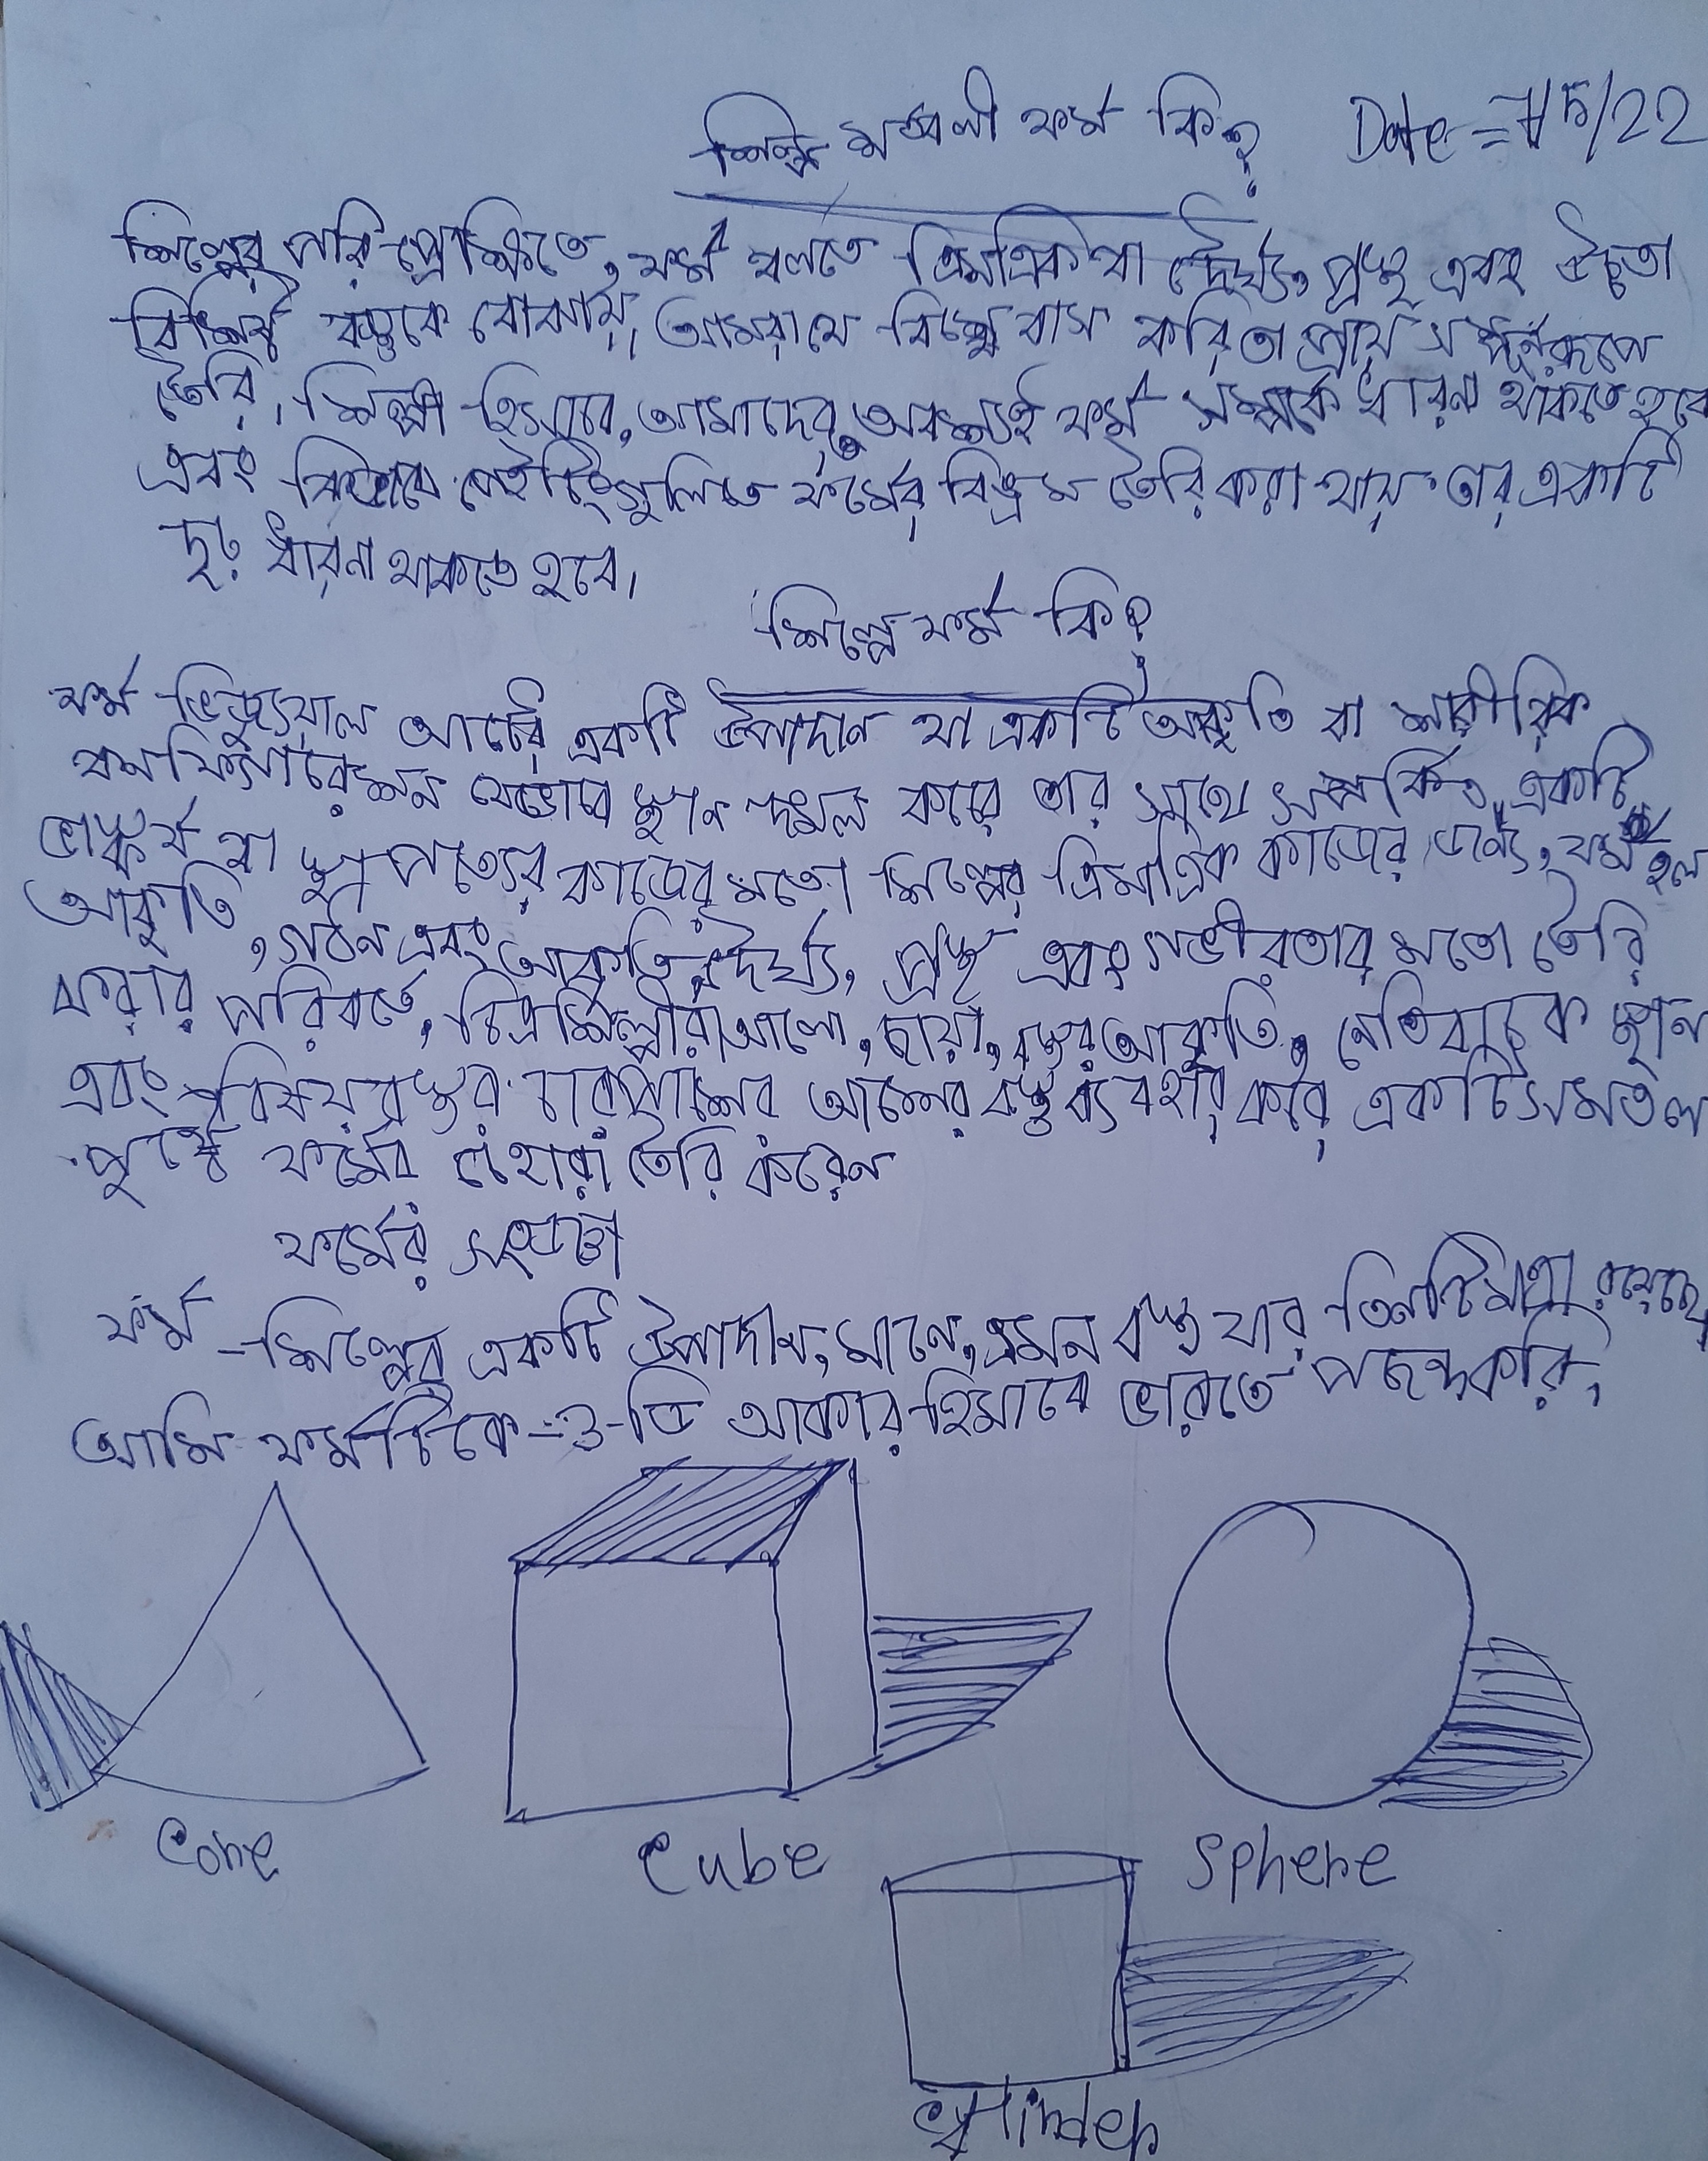 শিল্প মণ্ডলী ফর্ম কি?
Date = 7/5/22
শিল্পের পরিপ্রেক্ষিতে, ফর্ম বলতে ত্রিমাত্রিক বা দৈর্ঘ্য, প্রস্থ এবং উচ্চতা
বিশিষ্ট বস্তুকে বোঝায়, আমরা যে বিশ্বে বাস করি তা প্রায় সম্পূর্ণরূপে
তৈরি, শিল্পী হিসাবে, আমাদের, অবশ্যই ফর্ম সম্পর্কে ধারনা থাকতে হবে
এবং কিভাবে পেইন্টিংগুলিতে ফর্মের বিভ্রম তৈরি করা যায় তার একটি
দৃঢ় ধারনা থাকতে হবে।
শিল্পে ফর্ম কি?
ফর্ম ভিজ্যুয়াল আর্টের একটি উপাদান যা একটি আকৃতি বা শারীরিক
কনফিগারেশন যেভাবে স্থান দখল করে তার সাথে সম্পর্কিত, একটি
ভাস্কর্য বা স্থাপত্যের কাজের মতো শিল্পের ত্রিমাত্রিক কাজের জন্যে, ফর্ম হল
আকৃতি, গঠন এবং আকৃতির দৈর্ঘ্য, প্রস্থ এবং গভীরতার মতো তৈরি
করার পরিবর্তে, চিত্রশিল্পীরা আলো, ছায়া, বস্তুর আকৃতি, নেতিবাচক স্থান
এবং বিষয়বস্তুর চারপাশের আশের বস্তু ব্যবহার করে একটি সমতল
পৃষ্ঠে ফর্মের চেহারা তৈরি করেন
ফর্মের সংজ্ঞা
ফর্ম - শিল্পের একটি উপাদান, মানে, এমন বস্তু যার তিনটি মাত্রা রয়েছে,
আমি ফর্মটিকে - 3-ডি আকার হিসাবে ভাবতে পছন্দ করি,
Cone
Cube
Sphere
Cylinder